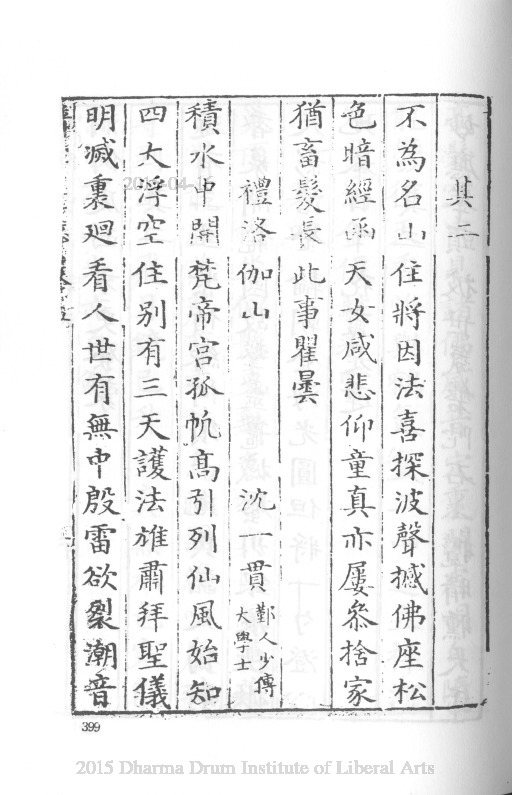 其二
不為名山住將因法喜探波聲撼佛座松
色暗經函天女咸悲仰童真亦屢叅捨家
猶畜髮長此事瞿曇
禮洛伽山 沈一貫 鄞人少傅大學士
積水中開梵帝宮孤帆高引列仙風始知
四大浮空住別有三天護法雄肅拜聖儀
明滅裏廻看人世有無中殷雷欲裂潮音
399
2015 Dharma Drum Institute of Liberal Arts